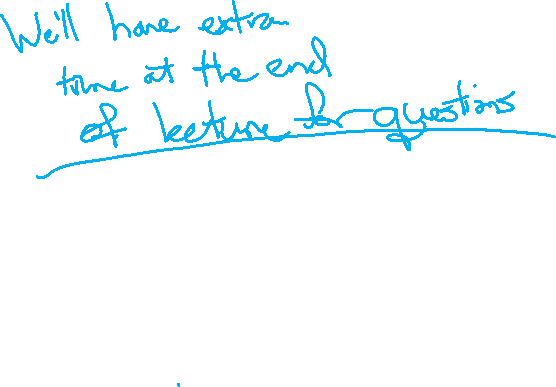 We'll have extra
time at the end
of lecture for questions